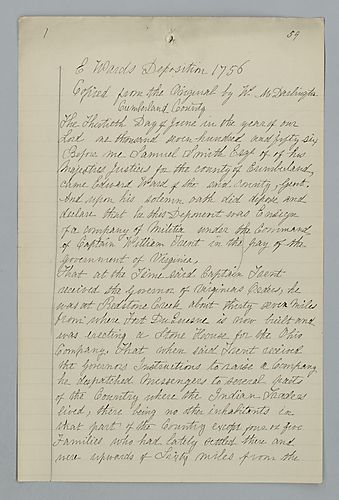 1
59
E Wards Deposition 1756
Copied from the Original by Wm. M. Darlington
Cumberland County
The Thirtieth Day of June in the year of our
Lord one thousand seven hundred and fifty six
Before me Samuel Smith Esqr of of his
Majesties Justices for the county of Cumberland
came Edward Ward of the said county, Gent.
And upon his solemn oath did depose and
declare that he this Deponent was Ensign
of a company of Militia under the Command
of Captain William Trent in the pay of the
government of Virginia
That at the Time said Captain Trent
received the Governor of Virginias Orders, he
was at Redstone Creek about thirty seven miles
from where Fort DuQuesne is now built and
was erecting a Stone House for the Ohio
Company. That when said Trent received
the Governors Instructions to raise a Company
he dispatched Messengers to several parts
of the Country where the Indian Traders
lived, there being no other inhabitants in
that part of the Country except one or five
Families who had lately settled there and
were upwards of Sixty miles from the